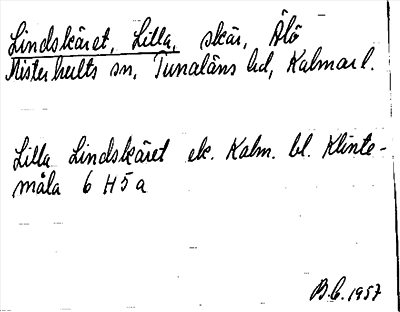 Lindskäret, Lilla, skär, Älö
Misterhults sn, Tunaläns hd, Kalmar l.
Lilla Lindskäret ek. Kalm. bl. Klinte-
måla 6 H5a
B.C. 1957